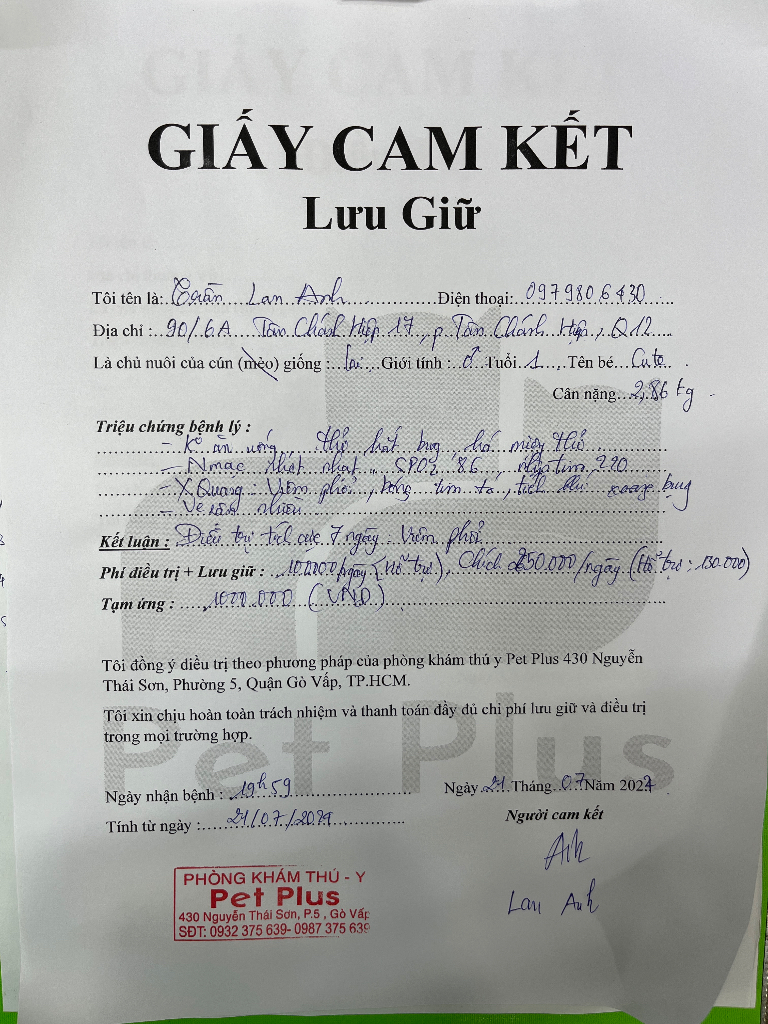 GIẤY CAM KẾT
Lưu Giữ
Tôi tên là: Trần Lan Anh Điện thoại: 0979806430
Địa chỉ : 90/6A Tân Chánh Hiệp 17, p Tân Chánh Hiệp, Q12
Là chủ nuôi của cún (mèo) giống : lai Giới tính : ♂ Tuổi 1 Tên bé Cute
Cân nặng 2,86 kg
Triệu chứng bệnh lý :
- K ăn uống, thở hất bụng, há miệng thở
- Nmạc nhợt nhạt, SPO2 86, nhịp tim 220
- X Quang : Viêm phổi, bóng tim to, tích dịch xoang bụng
- Ve rận nhiều
Kết luận : Điều trị tích cực 7 ngày. Viêm phổi
Phí điều trị + Lưu giữ : /ngày (Hỗ trợ), Chích 250.000/ngày (Hỗ trợ : 130.000)
Tạm ứng : 1000.000 (VND)
Tôi đồng ý điều trị theo phương pháp của phòng khám thú y Pet Plus 430 Nguyễn
Thái Sơn, Phường 5, Quận Gò Vấp, TP.HCM.
Tôi xin chịu hoàn toàn trách nhiệm và thanh toán đầy đủ chi phí lưu giữ và điều trị
trong mọi trường hợp.
Pet Plus
Ngày nhận bệnh : 19h59 Ngày 21 Tháng 07 Năm
Tính từ ngày : 21/07/
Người cam kết
Anh
Lan Anh
PHÒNG KHÁM THÚ - Y
Pet Plus
430 Nguyễn Thái Sơn, P.5 , Gò Vấp
SĐT: 0932 375 639- 0987 375 639